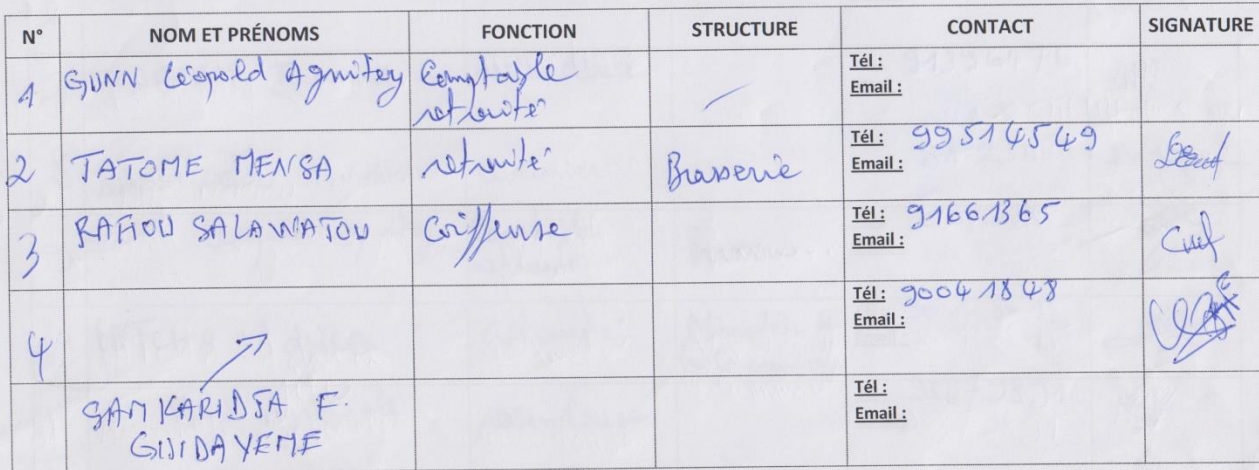 N° NOM ET PRÉNOMS FONCTION STRUCTURE CONTACT SIGNATURE
1 GUNN Léopold Agnitey Comptable Tél :
retraité Email :
2 TATOME MENSA retraité Brasserie Tél : 99514549
Email :
3 RAFIOU SALAWATOU Coiffeuse Tél : 91661365
Email :
4 Tél : 90041848
Email :
SAMKARIDJA F. Tél :
GIJIDAYEME Email :